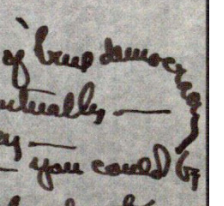 of true democracy
ntually —
ey —
— you could